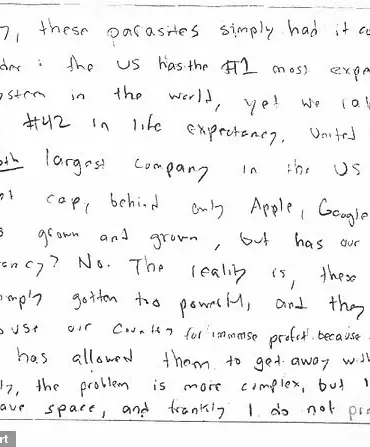 y, these parasites simply had it co
der: the US has the #1 most expe
ystem in the world, yet we
#42 in life expectancy. United
th largest company in the US
et cap, behind only Apple, Google
s grown and grown, but has our
ancy? No. The reality is, these
mply gotten too powerful, and they
buse our country for immense profit because
has allowed them to get away wit
ly, the problem is more complex, but I
ave space, and frankly I do not pre
rt